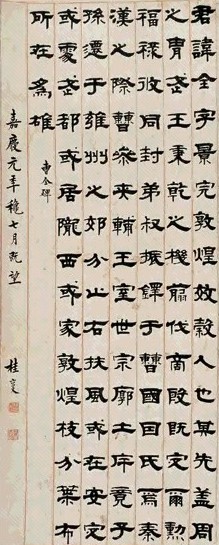 君諱全字景完敦煌效穀人其先蓋周
之胄武王秉乾之機翦伐商殷既定爾勳
福祿攸同封弟叔振鐸于曹國因氏焉秦
漢之際曹參夾輔王室世宗廓土斥竟子
孫遷于雍州之郊分止右扶風或在安定
或處武都或居隴西或家敦煌枝分葉布
所在為雄
曹全碑
嘉慶元年穐七月既望
桂馥